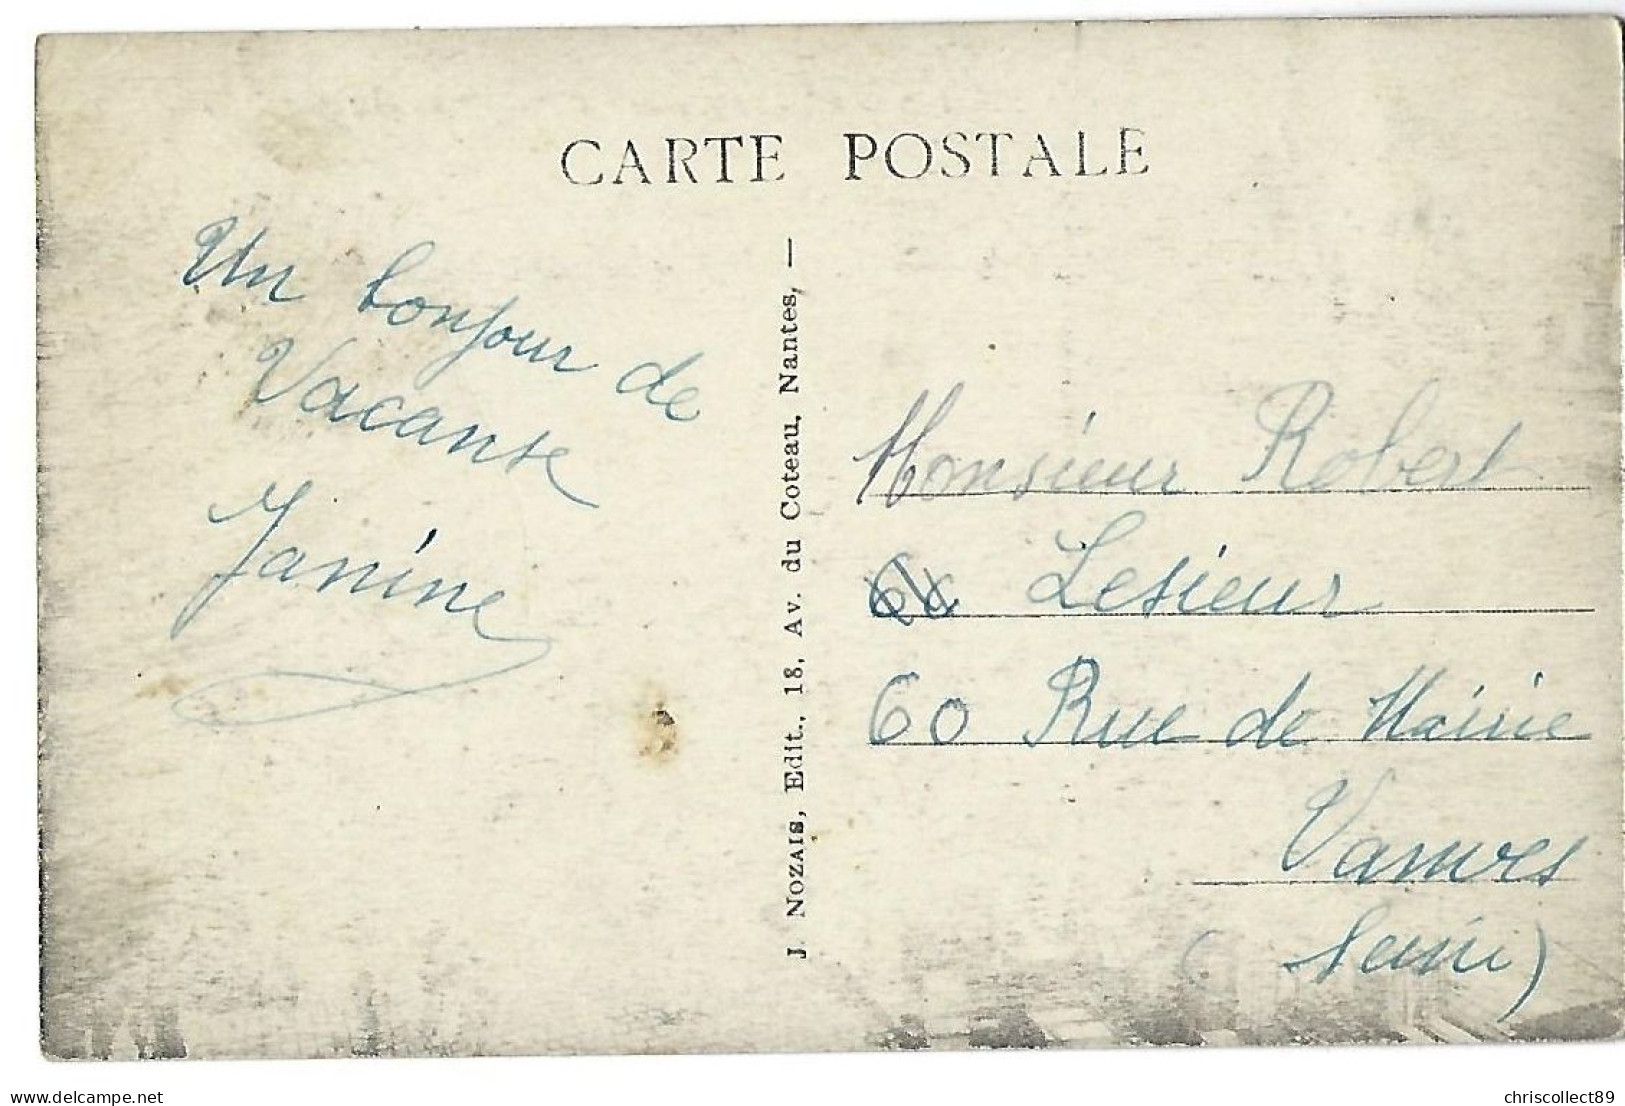 CARTE POSTALE
Un bonjour de
Vacanse
Janine
J. NOZAIS, Edit., 18, Av. du Coteau, Nantes, —
Monsieur Robert
Lesieur
60 Rue de Mairie
Vanves
(Seine)
delcampe.net
chriscollect89